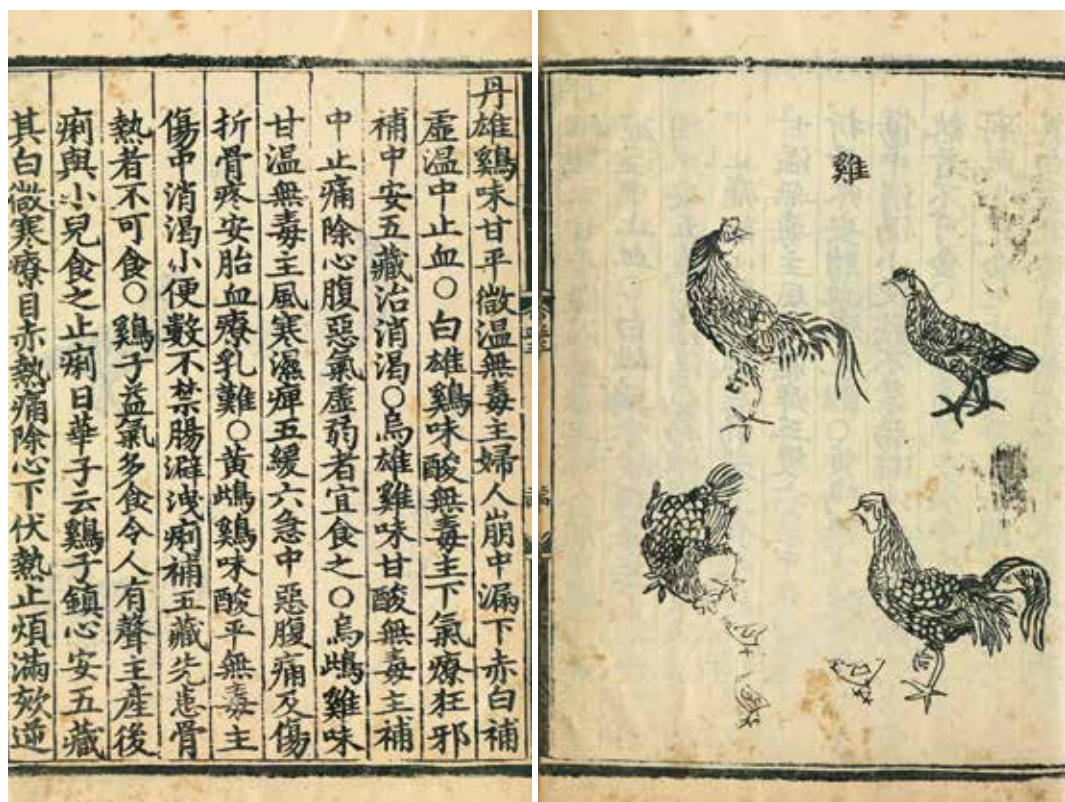 雞
丹雄鷄味甘平微温無毒主婦人崩中漏下赤白補
虛温中止血〇白雄鷄味酸無毒主下氣療狂邪
補中安五藏治消渴〇烏雄雞味甘酸無毒主補
中止痛除心腹惡氣虛弱者宜食之〇烏雌雞味
甘温無毒主風寒濕痺五緩六急中惡腹痛及傷
折骨疼安胎血療乳難〇黃雌鷄味酸平無毒主
傷中消渴小便數不禁腸澼洩痢補五藏先患骨
熱者不可食〇鷄子益氣多食令人有聲主產後
痢與小兒食之止痢日華子云鷄子鎮心安五藏
其白微寒療目赤熱痛除心下伏熱止煩滿欬逆